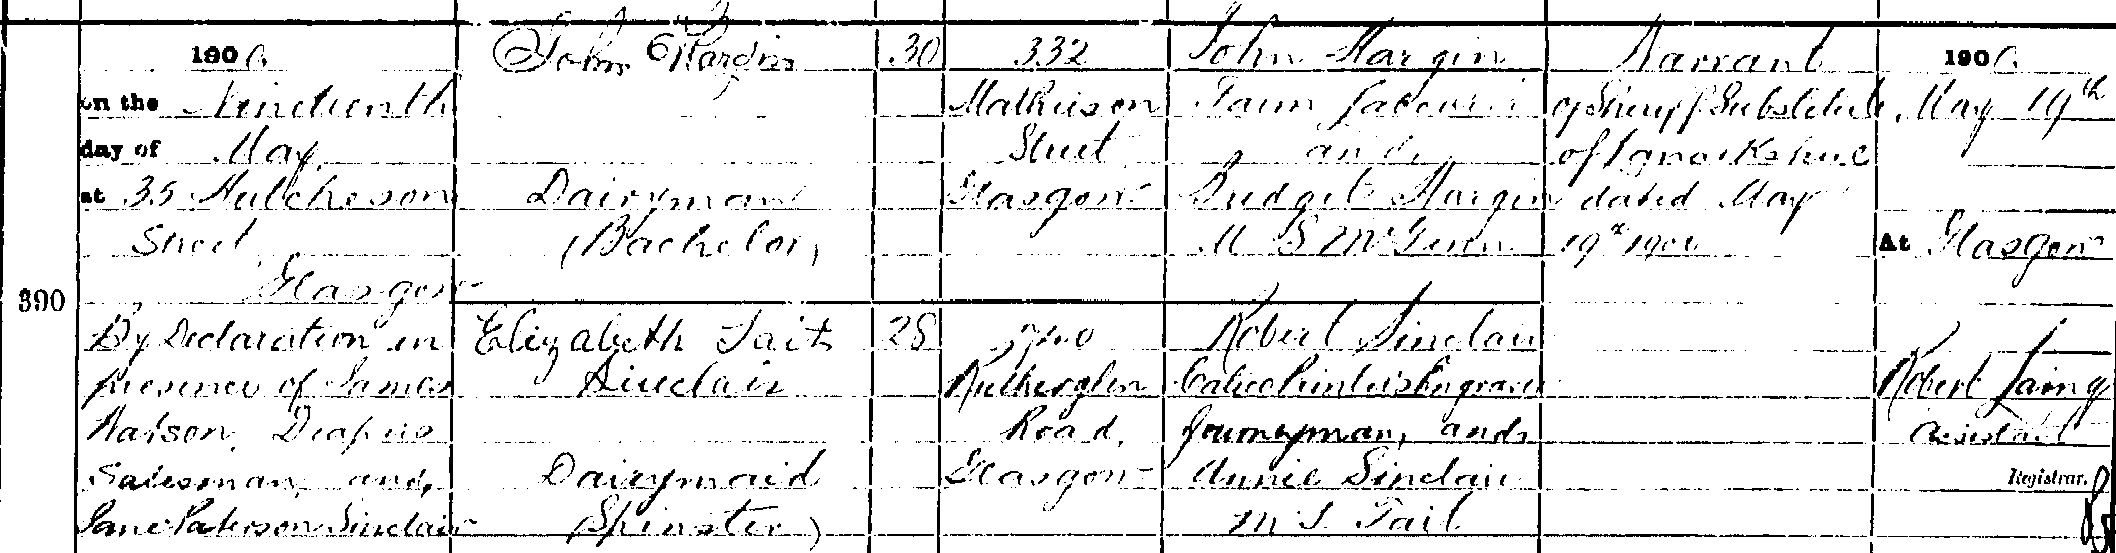 1900 John Hargin 30 332 John Hargin Warrant 1900
on the Nineteenth Mathieson Farm Labourer of Sheriff Substitute May 19th
day of May Street and of Lanarkshire
at 35 Hutcheson Dairyman Glasgow Bridget Hargin dated May
Street (Bachelor) M. S. McGinn 19th 1900 At Glasgow
Glasgow
390
By Declaration in Elizabeth Tait 28 Robert Sinclair
presence of James Sinclair Rutherglen Calico Printer's Engraver Robert Laing
Watson, Drapers Road, Journeyman, and Assistant
Salesman, and, Dairymaid Glasgow Annie Sinclair Registrar.
Jane Paterson Sinclair (Spinster) M. S. Tait